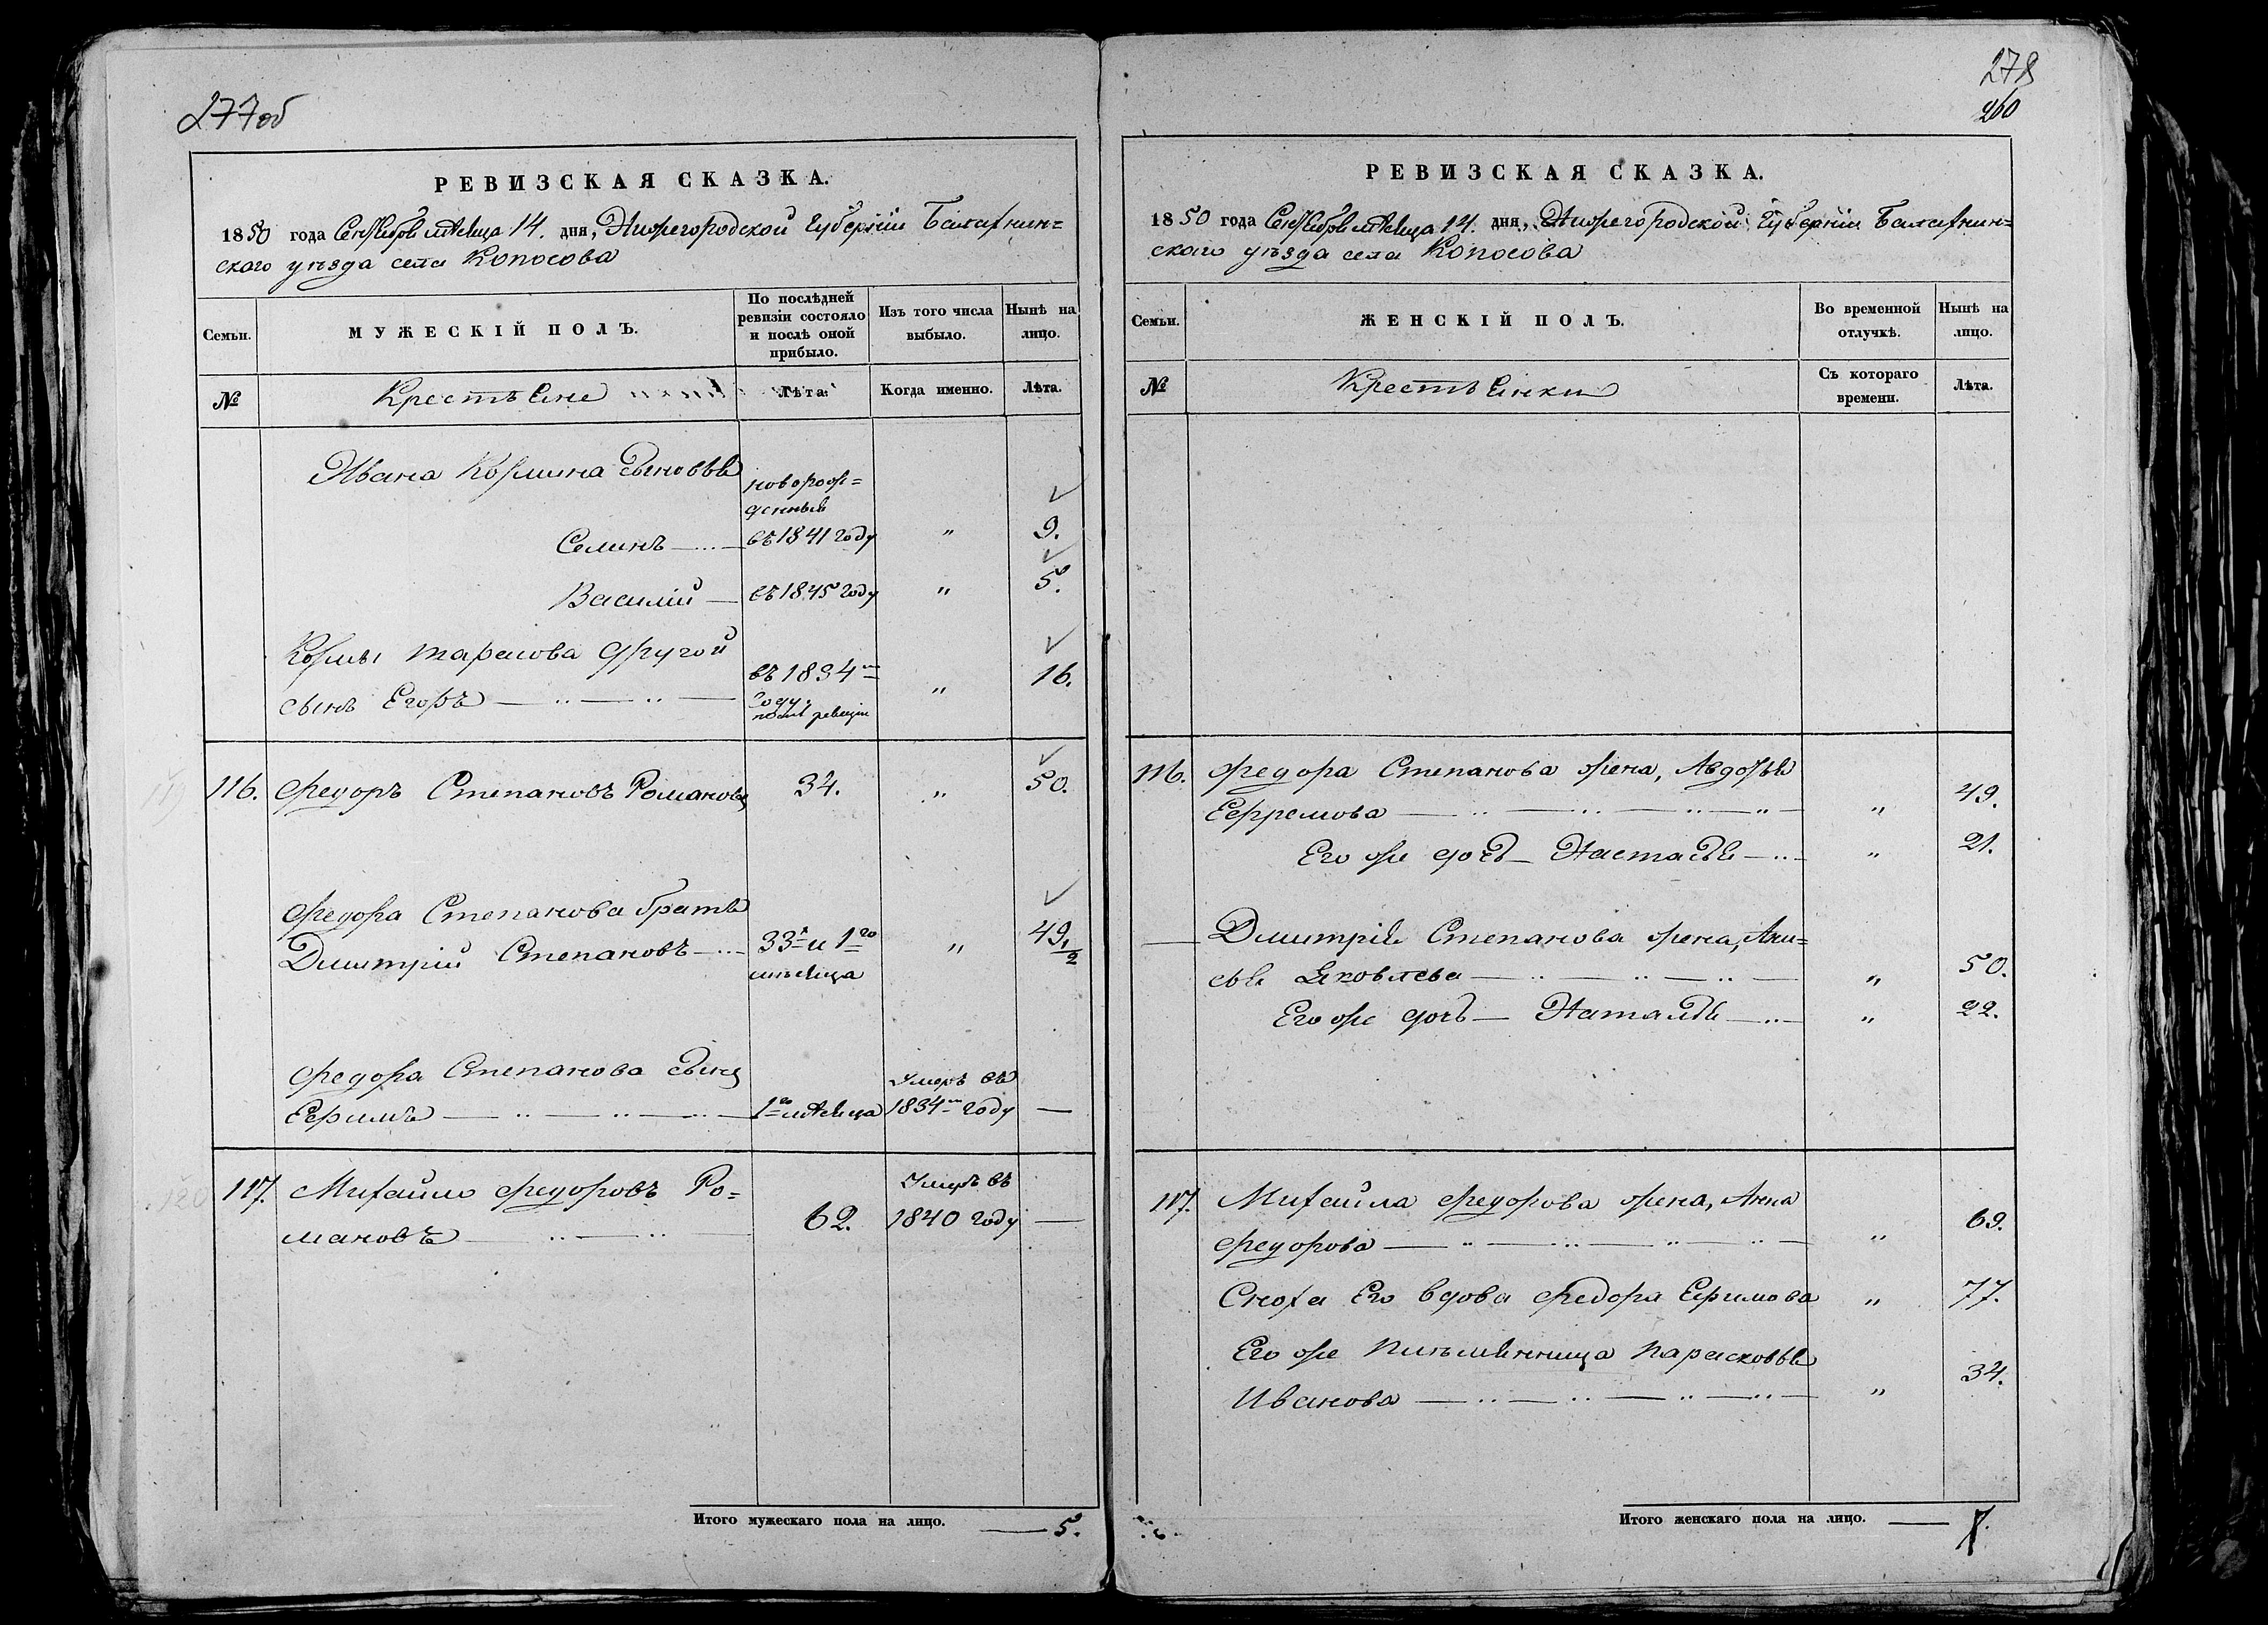 277об
РЕВИЗСКАЯ СКАЗКА.
1850 года Сентября мѣсяца 14. дня, Нижегородской Губерніи Балахнин=
скаго уѣзда села Копосова
Семьи.
МУЖЕСКІЙ ПОЛЪ.
По послѣдней ревизіи состояло и послѣ оной прибыло.
Изъ того числа выбыло.
Нынѣ на лицо.
№
Крестьяне
Лѣта.
Когда именно.
Лѣта.
Ивана Козмина сыновья
новорож=
денныя
Семинъ въ 1841 году " 9.
Василій въ 1845 году " 5.
Козмы Тарасова другой
сынъ Егоръ въ 1834м году, послѣ ревизіи " 16.
116. Федоръ Степановъ Романовъ 34. " 50.
Федора Степанова братья
Дмитрій Степановъ 33х и 1го " 49 1/2
мѣсяца
Федора Степанова сынъ Умеръ въ
Ефимъ 1го мѣсяца 1834м году —
117. Михайло Федоровъ Ро= Умеръ въ
мановъ 62. 1840 году —
Итого мужескаго пола на лицо. — 5.
278
260
РЕВИЗСКАЯ СКАЗКА.
1850 года Сентября мѣсяца 14. дня, Нижегородской Губерніи Балахнин=
скаго уѣзда села Копосова
Семьи.
ЖЕНСКІЙ ПОЛЪ.
Во временной отлучкѣ.
Нынѣ на лицо.
№
Крестьянки
Съ котораго времени.
Лѣта.
116. Федора Степанова жена, Авдотья
Ефремова " 49.
Его же дочь Настасья " 21.
Дмитрія Степанова жена, Ани=
сья Яковлева " 50.
Его же дочь Наталья " 22.
117. Михаила Федорова жена, Анна
Федорова " 69.
Сноха Его вдова Федора Ефимова " 77.
Его же племянница Парасковья
Иванова " 34.
Итого женскаго пола на лицо. — 7.